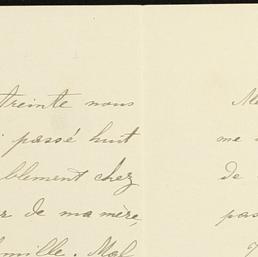 treinte nous
passé huit
blement chez
r de ma mère,
mille. Mal
me
de
pas